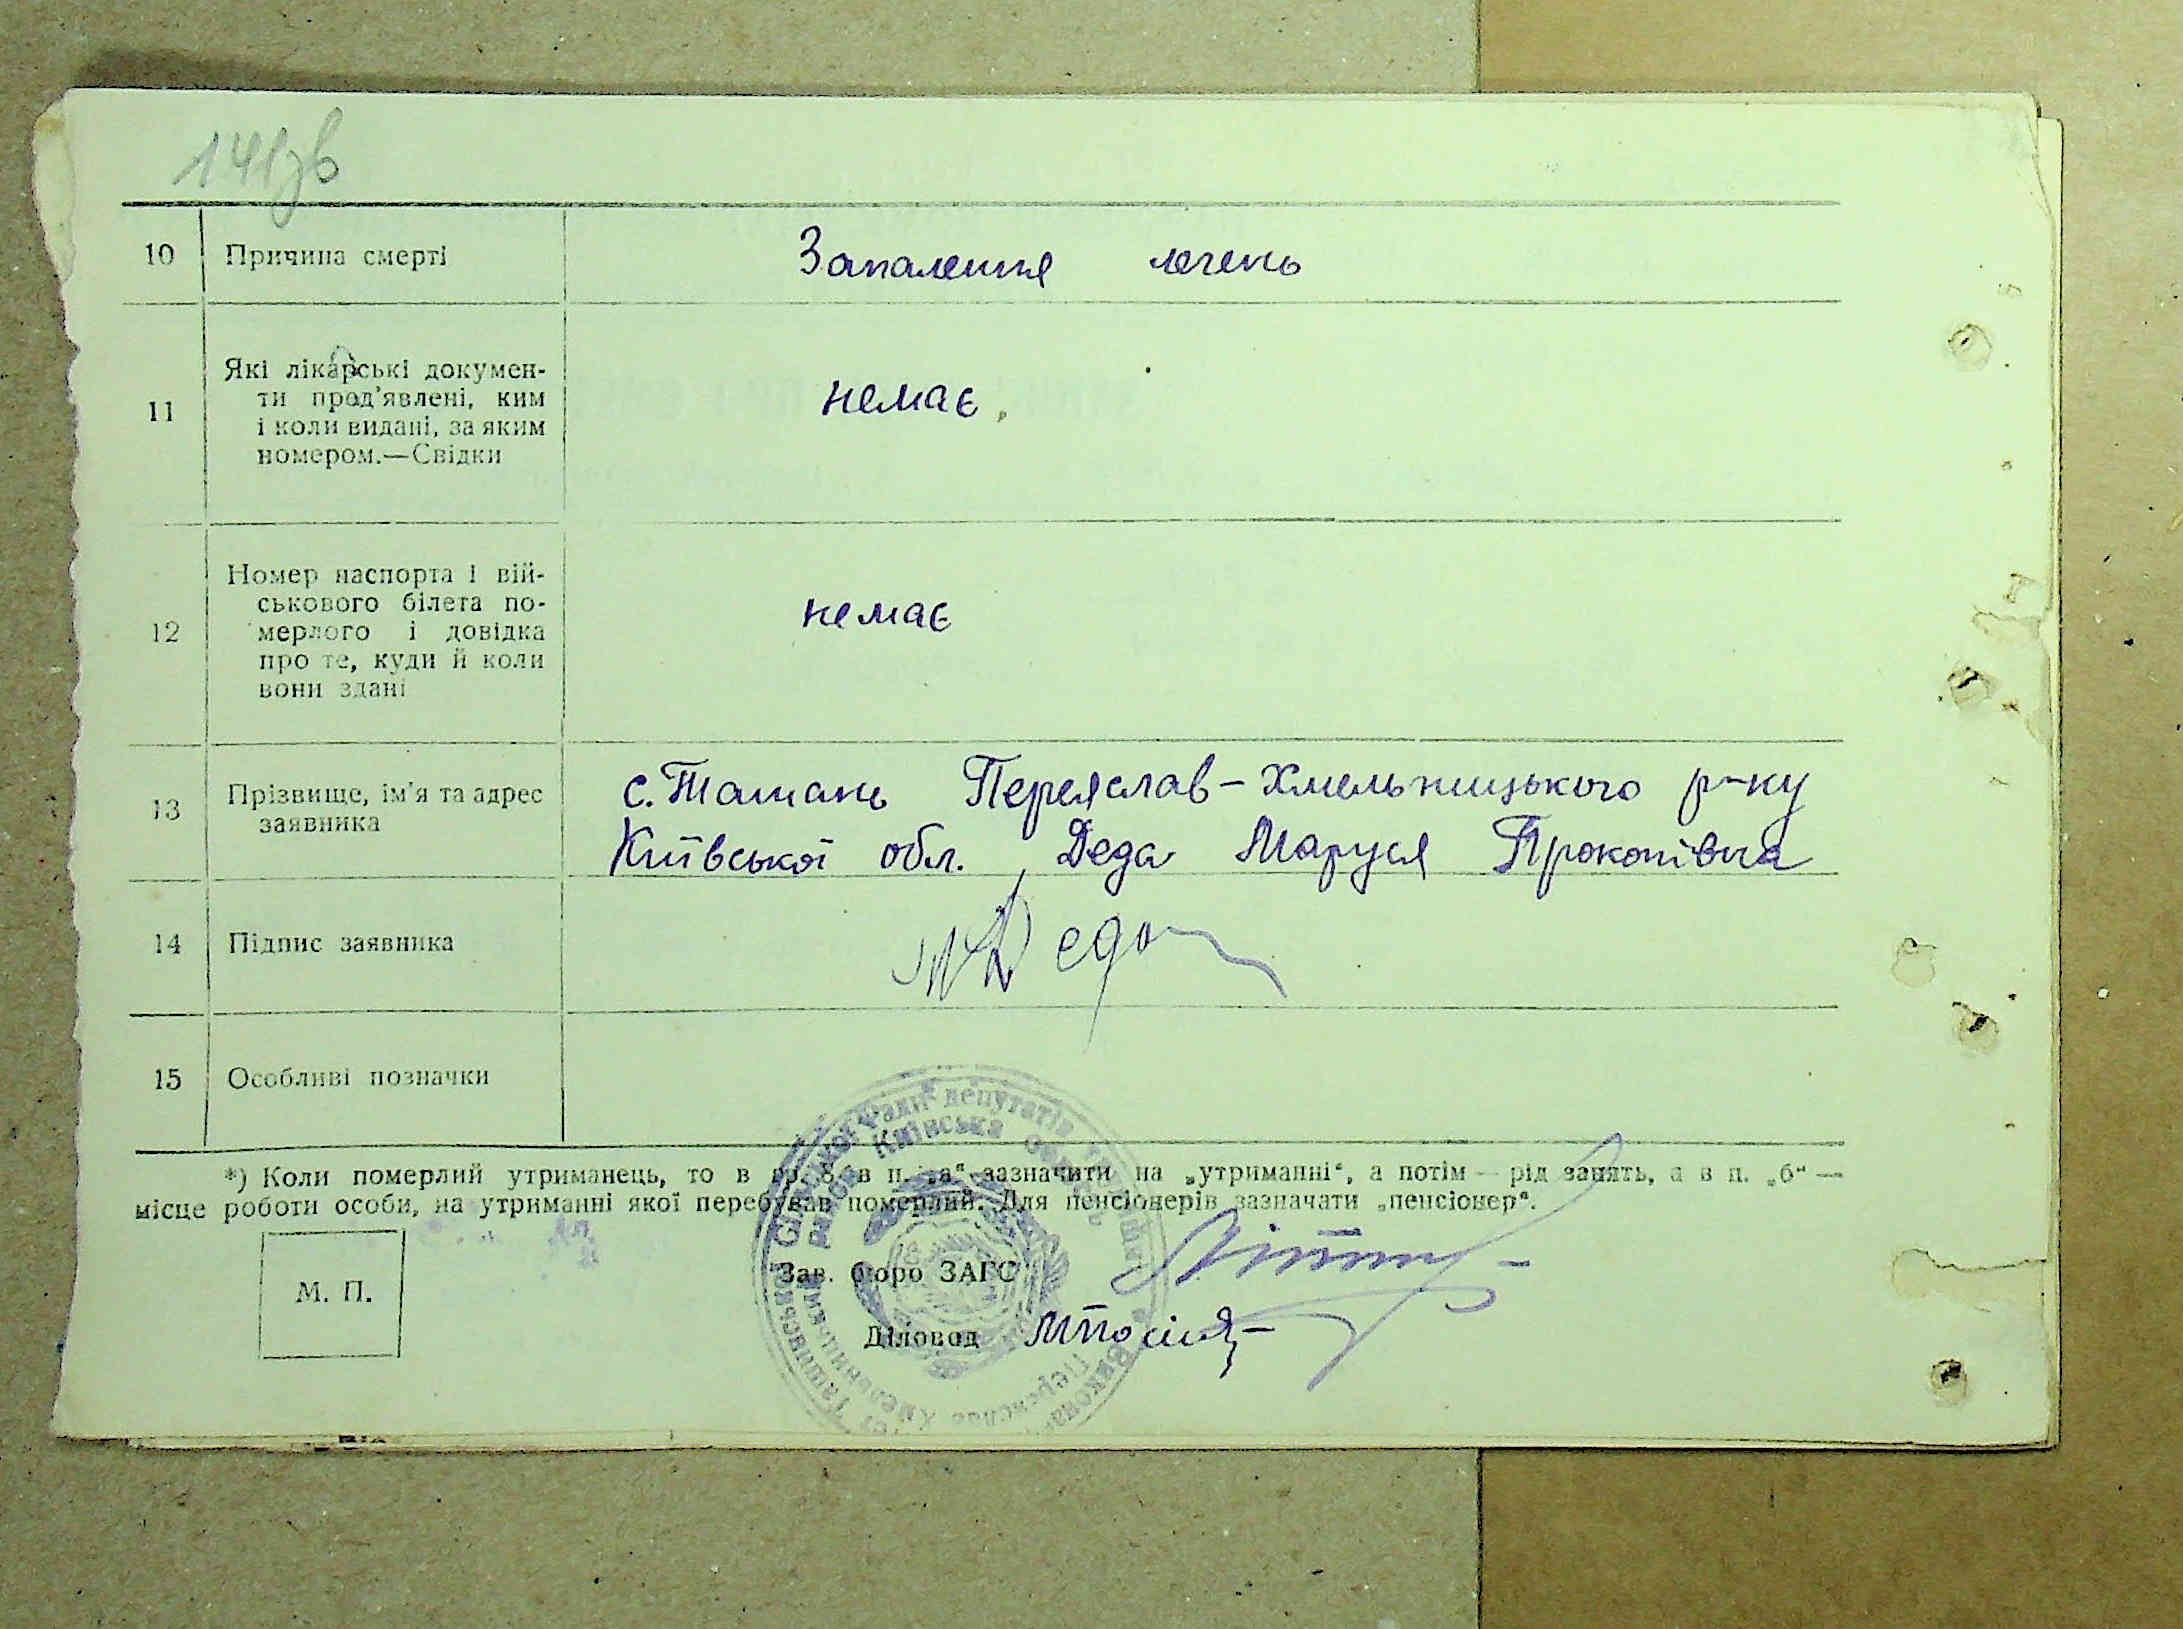 141зв
10 Причина смерті Запалення легень
11 Які лікарські докумен-
ти пред'явлені, ким
і коли видані, за яким
номером.—Свідки
немає.
12 Номер паспорта і вій-
ськового білета по-
мерлого і довідка
про те, куди й коли
вони здані
немає
13 Прізвище, ім'я та адрес
заявника
с. Ташань Переяслав-Хмельницького р-ну
Київської обл., Деда Маруся Прокопівна
14 Підпис заявника МДеда
15 Особливі позначки
*) Коли померлий утриманець, то в гр. 8, в п. „а“ зазначити на „утриманні“, а потім — рід занять, а в п. „б“ —
місце роботи особи, на утриманні якої перебував померлий. Для пенсіонерів зазначати „пенсіонер“.
М. П.
Зав. бюро ЗАГС
Діловод
Ради депутатів
Київська
Переяслав Хмельницький